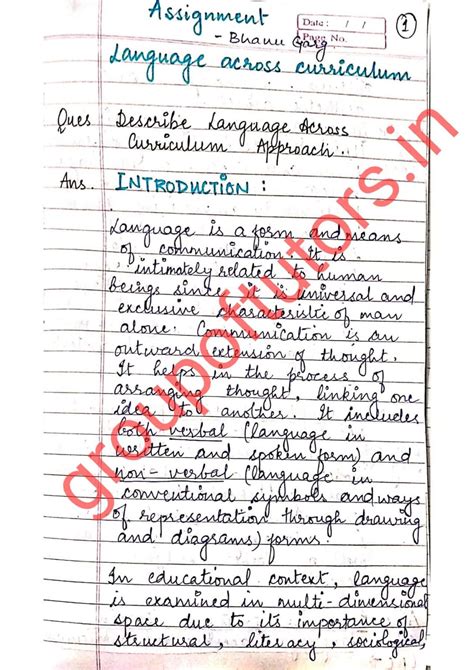 Assignment
Date : / /
Page No.
1
- Bhanu Garg
Language across curriculum
Ques Describe Language Across
Curriculum Approach.
Ans. INTRODUCTION :
Language is a form and means
of communication. It is
intimately related to human
beings since it is universal and
exclusive characteristic of man
alone. Communication is an
outward extension of thought.
It helps in the process of
arranging thought, linking one
idea to another. It includes
both verbal (language in
written and spoken form) and
non-verbal (language in
conventional symbols and ways
of representation through drawing
and diagrams) forms.
In educational context, language
is examined in multi-dimensional
space due to its importance of
structural, literacy, sociological,
groupoftutors.in